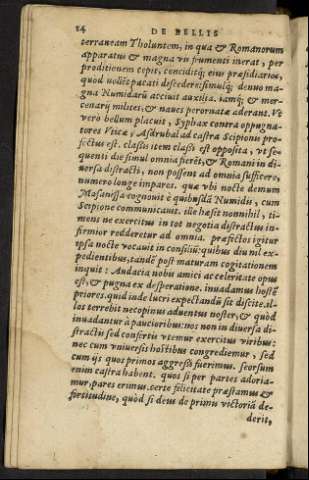 24 DE BELLIS
terraneam Tholuntem, in qua & Romanorum
apparatus & magna vis frumenti inerat, per
proditionem cepit, cenciditq; eius præsidiarios,
quod noluissent pacati descedere: simulq; denuo ma-
gna Numidarũ acciuit auxilia. iamq; & mer-
cenarij milites, & naues perornatæ aderant. Vt
vero bellum placuit, Syphax contra oppugna-
tores Vticæ, Asdrubal ad castra Scipionis pro-
fectus est. classis item classi est opposita, vt se-
quenti die simul omnia perẽt, & Romani in di-
uersa distracti, non possent ad omnia sufficere,
numero longe impares. quæ vbi nocte demum
Masanissa cognouit è quibusdã Numidis, cum
Scipione communicauit. ille hæsit nonnihil, ti-
mens ne exercitus in tot negotia distractus in-
firmior redderetur ad omnia. præfictos igitur
ipsa nocte vocauit in consiliũ: quibus diu nil ex-
pedientibus, tandẽ post maturam cogitationem
inquit: Audacia nobis amici ac celeritate opus
est, & pugna ex desperatione. inuadamus hostẽ
priores. quid inde lucri expectandũ sit discite. il-
los terrebit necopinus aduentus noster, & quòd
inuadantur à paucioribus: nos non in diuersa di-
stractis sed confertis vtemur exercitus viribus:
nec cum vniuersis hostibus congrediemur, sed
cum ijs quos primos aggressi fuerimus. seorsum
enim castra habent. quos si per partes adoria-
mur, pares erimus. certe felicitate præstamus &
fortitudine, quòd si deus de primis victoriã de-
derit,